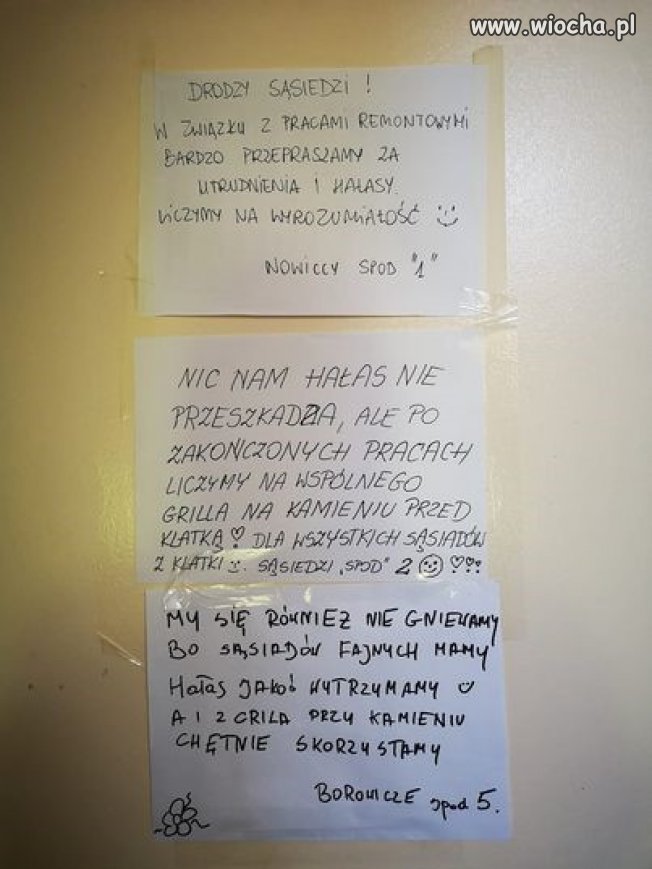 www.wiocha.pl
DRODZY SĄSIEDZI !
W ZWIĄZKU Z PRACAMI REMONTOWYMI
BARDZO PRZEPRASZAMY ZA
UTRUDNIENIA I HAŁASY.
LICZYMY NA WYROZUMIAŁOŚĆ :)
NOWICCY SPOD "1"
NIC NAM HAŁAS NIE
PRZESZKADZA, ALE PO
ZAKOŃCZONYCH PRACACH
LICZYMY NA WSPÓLNEGO
GRILLA NA KAMIENIU PRZED
KLATKĄ ♡ DLA WSZYSTKICH SĄSIADÓW
Z KLATKI :). SĄSIEDZI „SPOD" 2 ☺ ♡♡♡
MY SIĘ RÓWNIEŻ NIE GNIEWAMY
BO SĄSIADÓW FAJNYCH MAMY
HAŁAS JAKOŚ WYTRZYMAMY :)
A I Z GRILA PRZY KAMIENIU
CHĘTNIE SKORZYSTAMY
BOROWICZE spod 5.